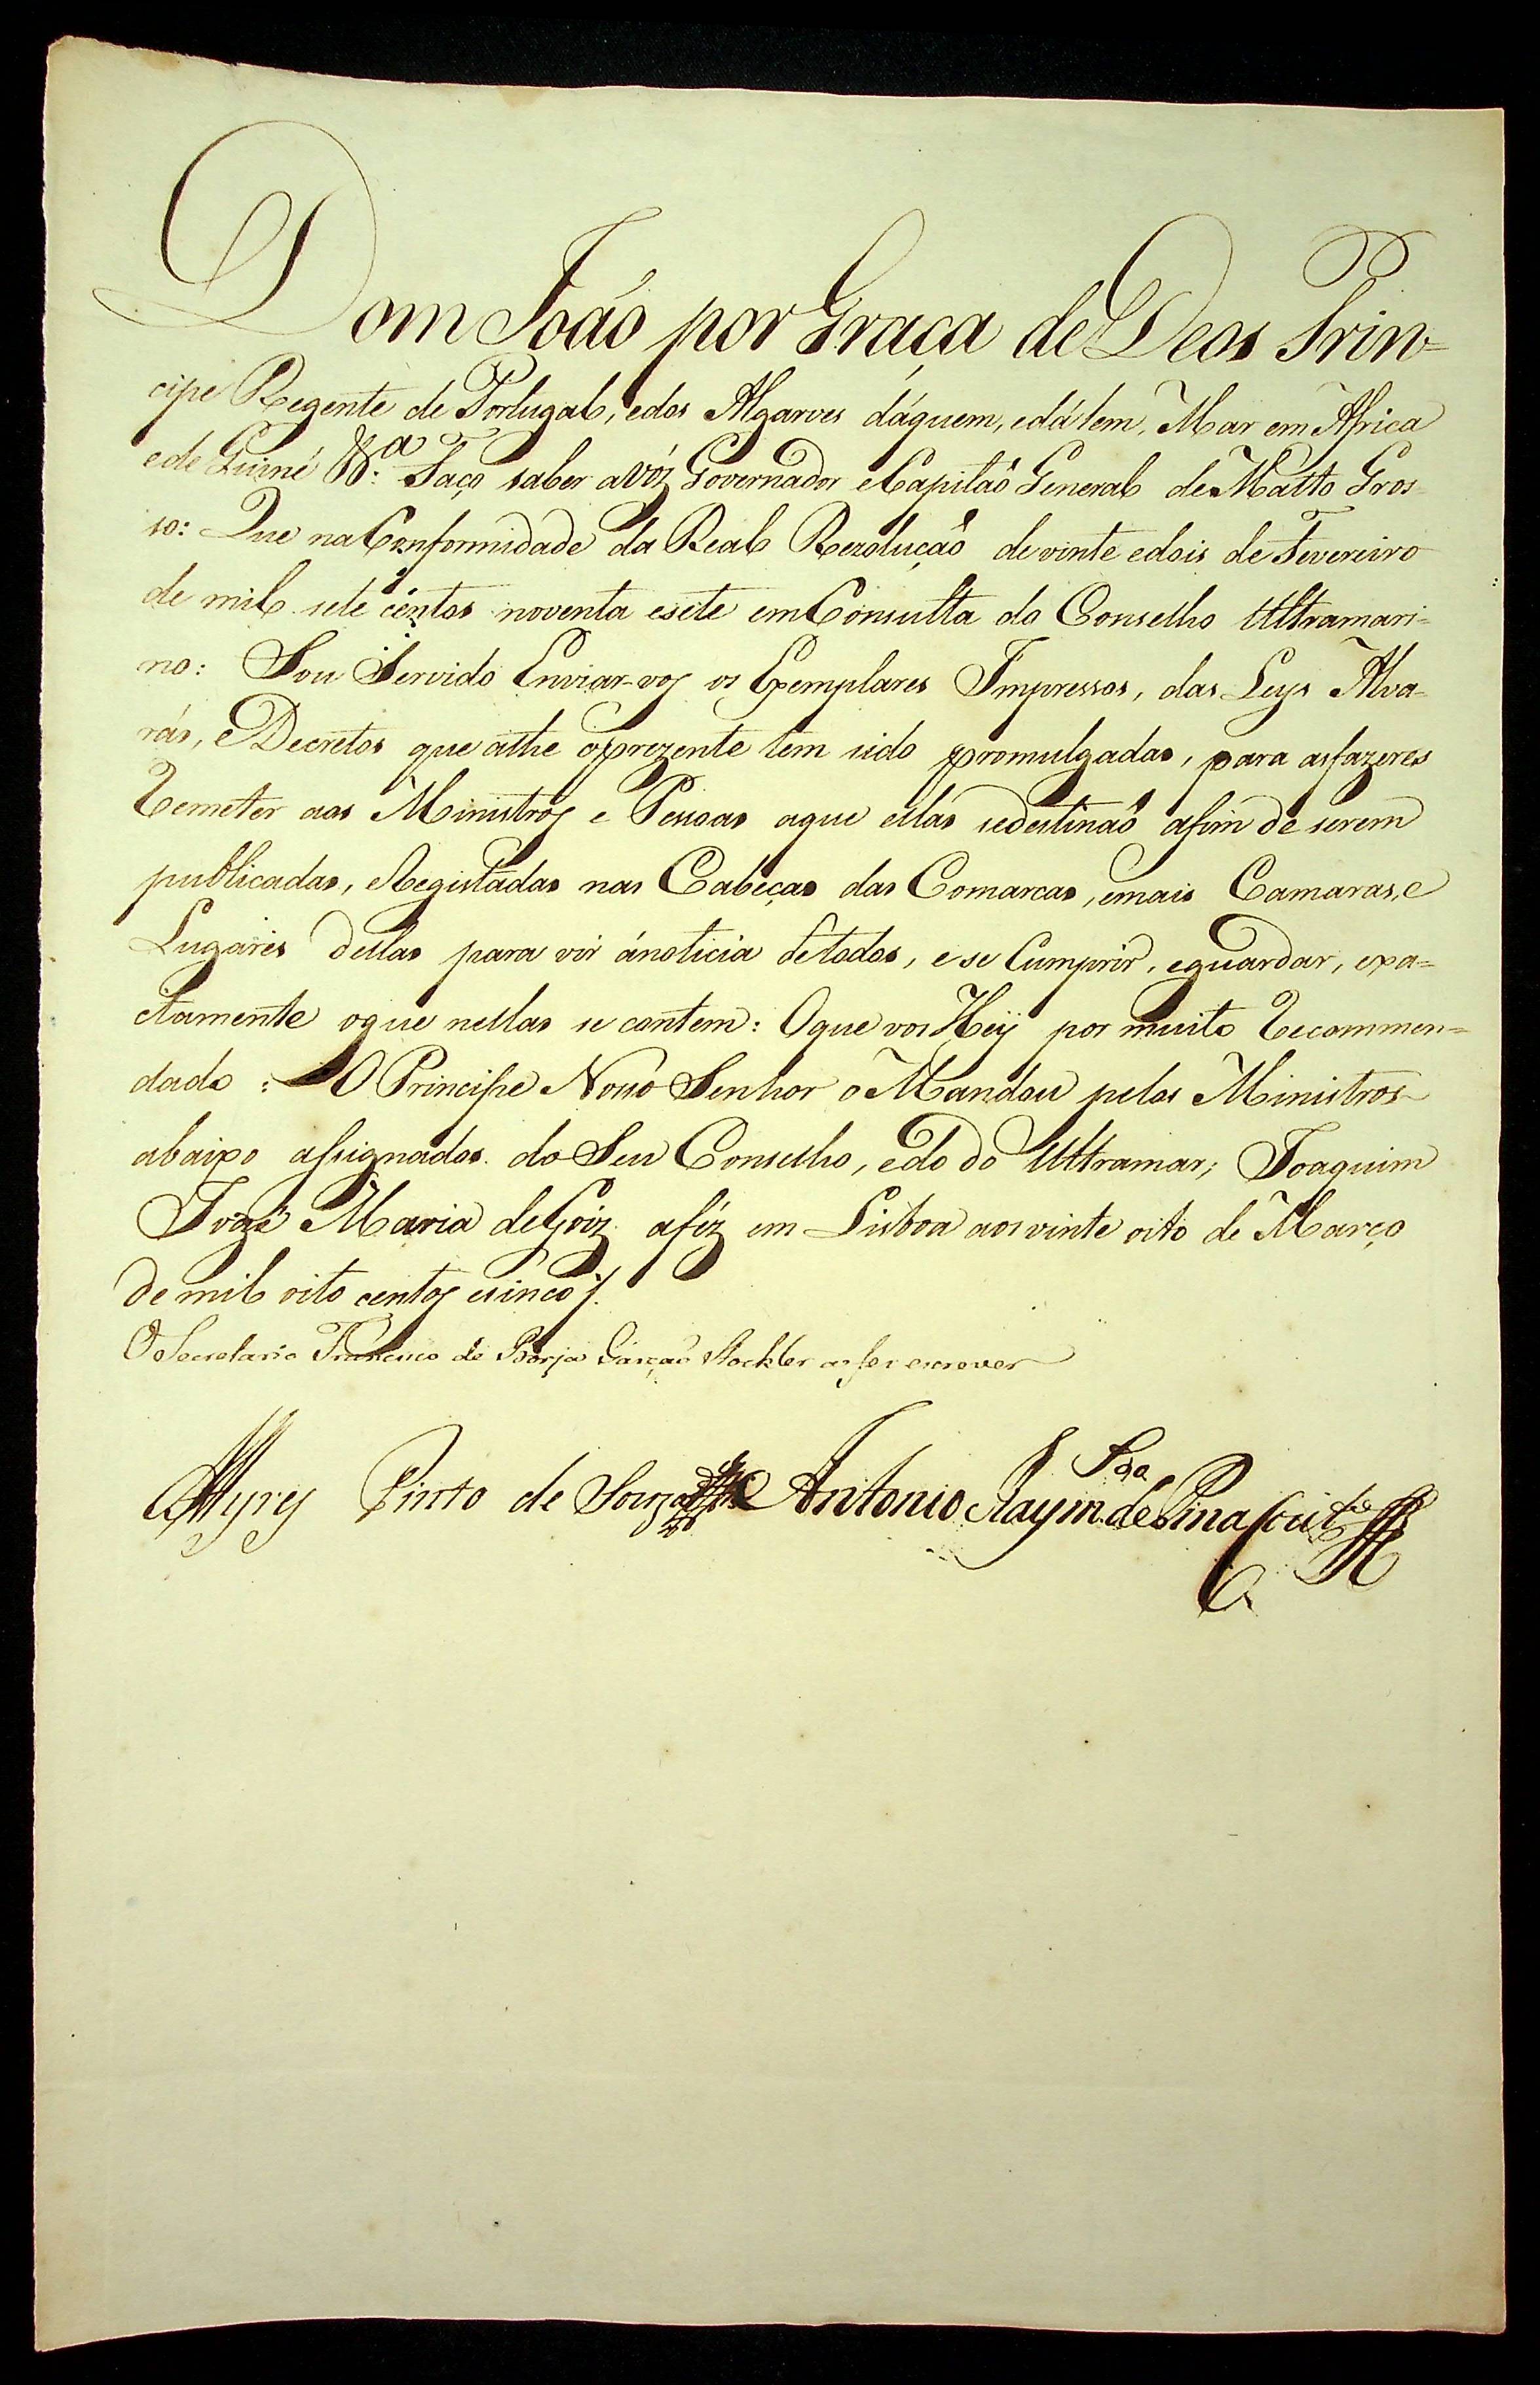 Dom João por Graça de Deos Prin=
cipe Regente de Portugal, e dos Algarves dáquem, e dálem, Mar em Africa
e de Guiné &.ª Faço saber a vós Governador e Capitaõ General de Matto Gros=
so: Que na Conformidade da Real Rezoluçaõ de vinte e dois de Fevereiro
de mil sete centos noventa e sete em Consulta do Conselho Ultramari=
no: Sou Servido Enviar-vos os Exemplares Impressos, das Leys Alva=
rás, e Decretos que athe o prezente tem sido promulgadas, para as fazeres
Remeter aos Ministros e Pessoas a que ellas se destinaõ afim de serem
publicadas, e Registadas nas Cabeças das Comarcas, e mais Camaras, e
Lugares dellas para vir á noticia de todos, e se Cumprir, e guardar, exa=
ctamente o que nellas se contem: O que vos Hey por muito Recommen=
dado: O Principe Nosso Senhor o Mandou pelos Ministros
abaixo assignados do Seu Conselho, e do do Ultramar; Joaquim
Jozé Maria de Goiz a fez em Lisboa aos vinte oito de Março
de mil oito centos e sinco ./.
O Secretario Francisco de Borja Garçaõ Stockler a fes escrever
Ayres Pinto de Souza Antonio Raym.do de Pina Cout.o